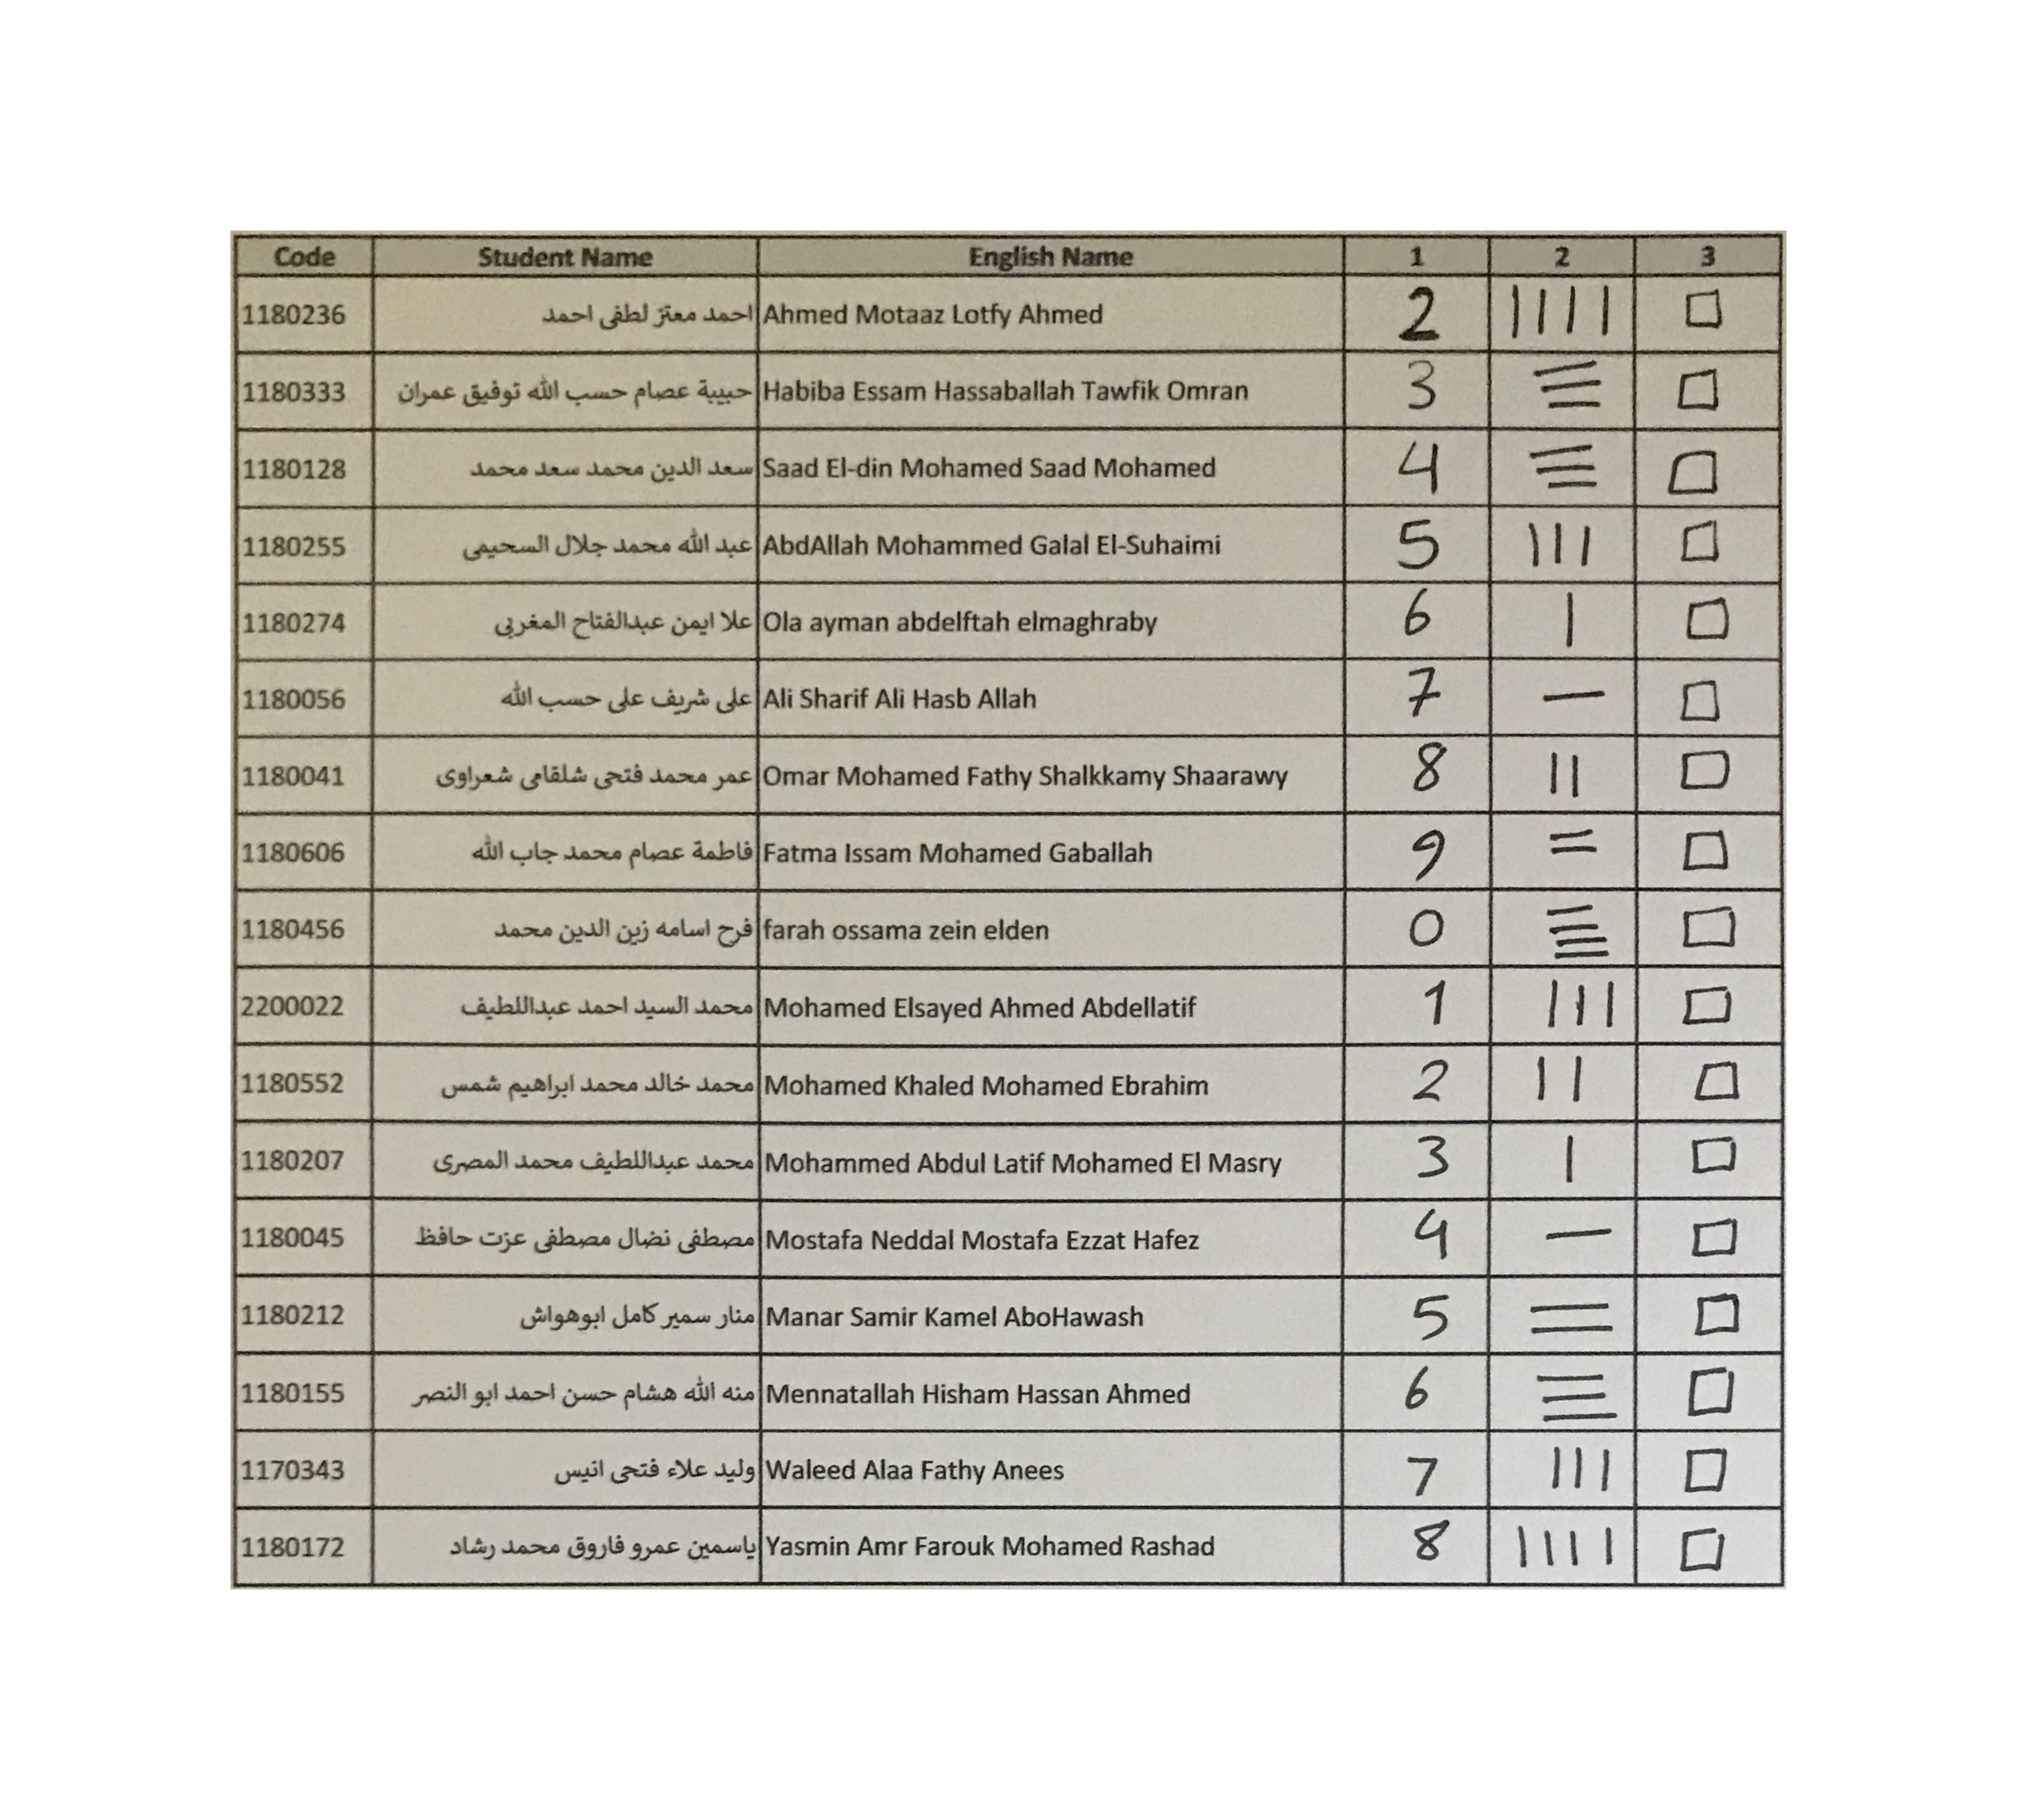 Code Student Name English Name 1 2 3
1180236 احمد معتز لطفى احمد Ahmed Motaaz Lotfy Ahmed 2 ||||  □
1180333 حبيبة عصام حسب الله توفيق عمران Habiba Essam Hassaballah Tawfik Omran 3 ☰ □
1180128 سعد الدين محمد سعد محمد Saad El-din Mohamed Saad Mohamed 4 ☰ □
1180255 عبد الله محمد جلال السحيمى AbdAllah Mohammed Galal El-Suhaimi 5 ||| □
1180274 علا ايمن عبدالفتاح المغربى Ola ayman abdelftah elmaghraby 6 | □
1180056 على شريف على حسب الله Ali Sharif Ali Hasb Allah 7 — □
1180041 عمر محمد فتحى شلقامى شعراوى Omar Mohamed Fathy Shalkkamy Shaarawy 8 || □
1180606 فاطمة عصام محمد جاب الله Fatma Issam Mohamed Gaballah 9 = □
1180456 فرح اسامه زين الدين محمد farah ossama zein elden 0 𝌆 □
2200022 محمد السيد احمد عبداللطيف Mohamed Elsayed Ahmed Abdellatif 1 ||| □
1180552 محمد خالد محمد ابراهيم شمس Mohamed Khaled Mohamed Ebrahim 2 || □
1180207 محمد عبداللطيف محمد المصرى Mohammed Abdul Latif Mohamed El Masry 3 | □
1180045 مصطفى نضال مصطفى عزت حافظ Mostafa Neddal Mostafa Ezzat Hafez 4 — □
1180212 منار سمير كامل ابوهواش Manar Samir Kamel AboHawash 5 = □
1180155 منه الله هشام حسن احمد ابو النصر Mennatallah Hisham Hassan Ahmed 6 ☰ □
1170343 وليد علاء فتحى انيس Waleed Alaa Fathy Anees 7 ||| □
1180172 ياسمين عمرو فاروق محمد رشاد Yasmin Amr Farouk Mohamed Rashad 8 |||| □